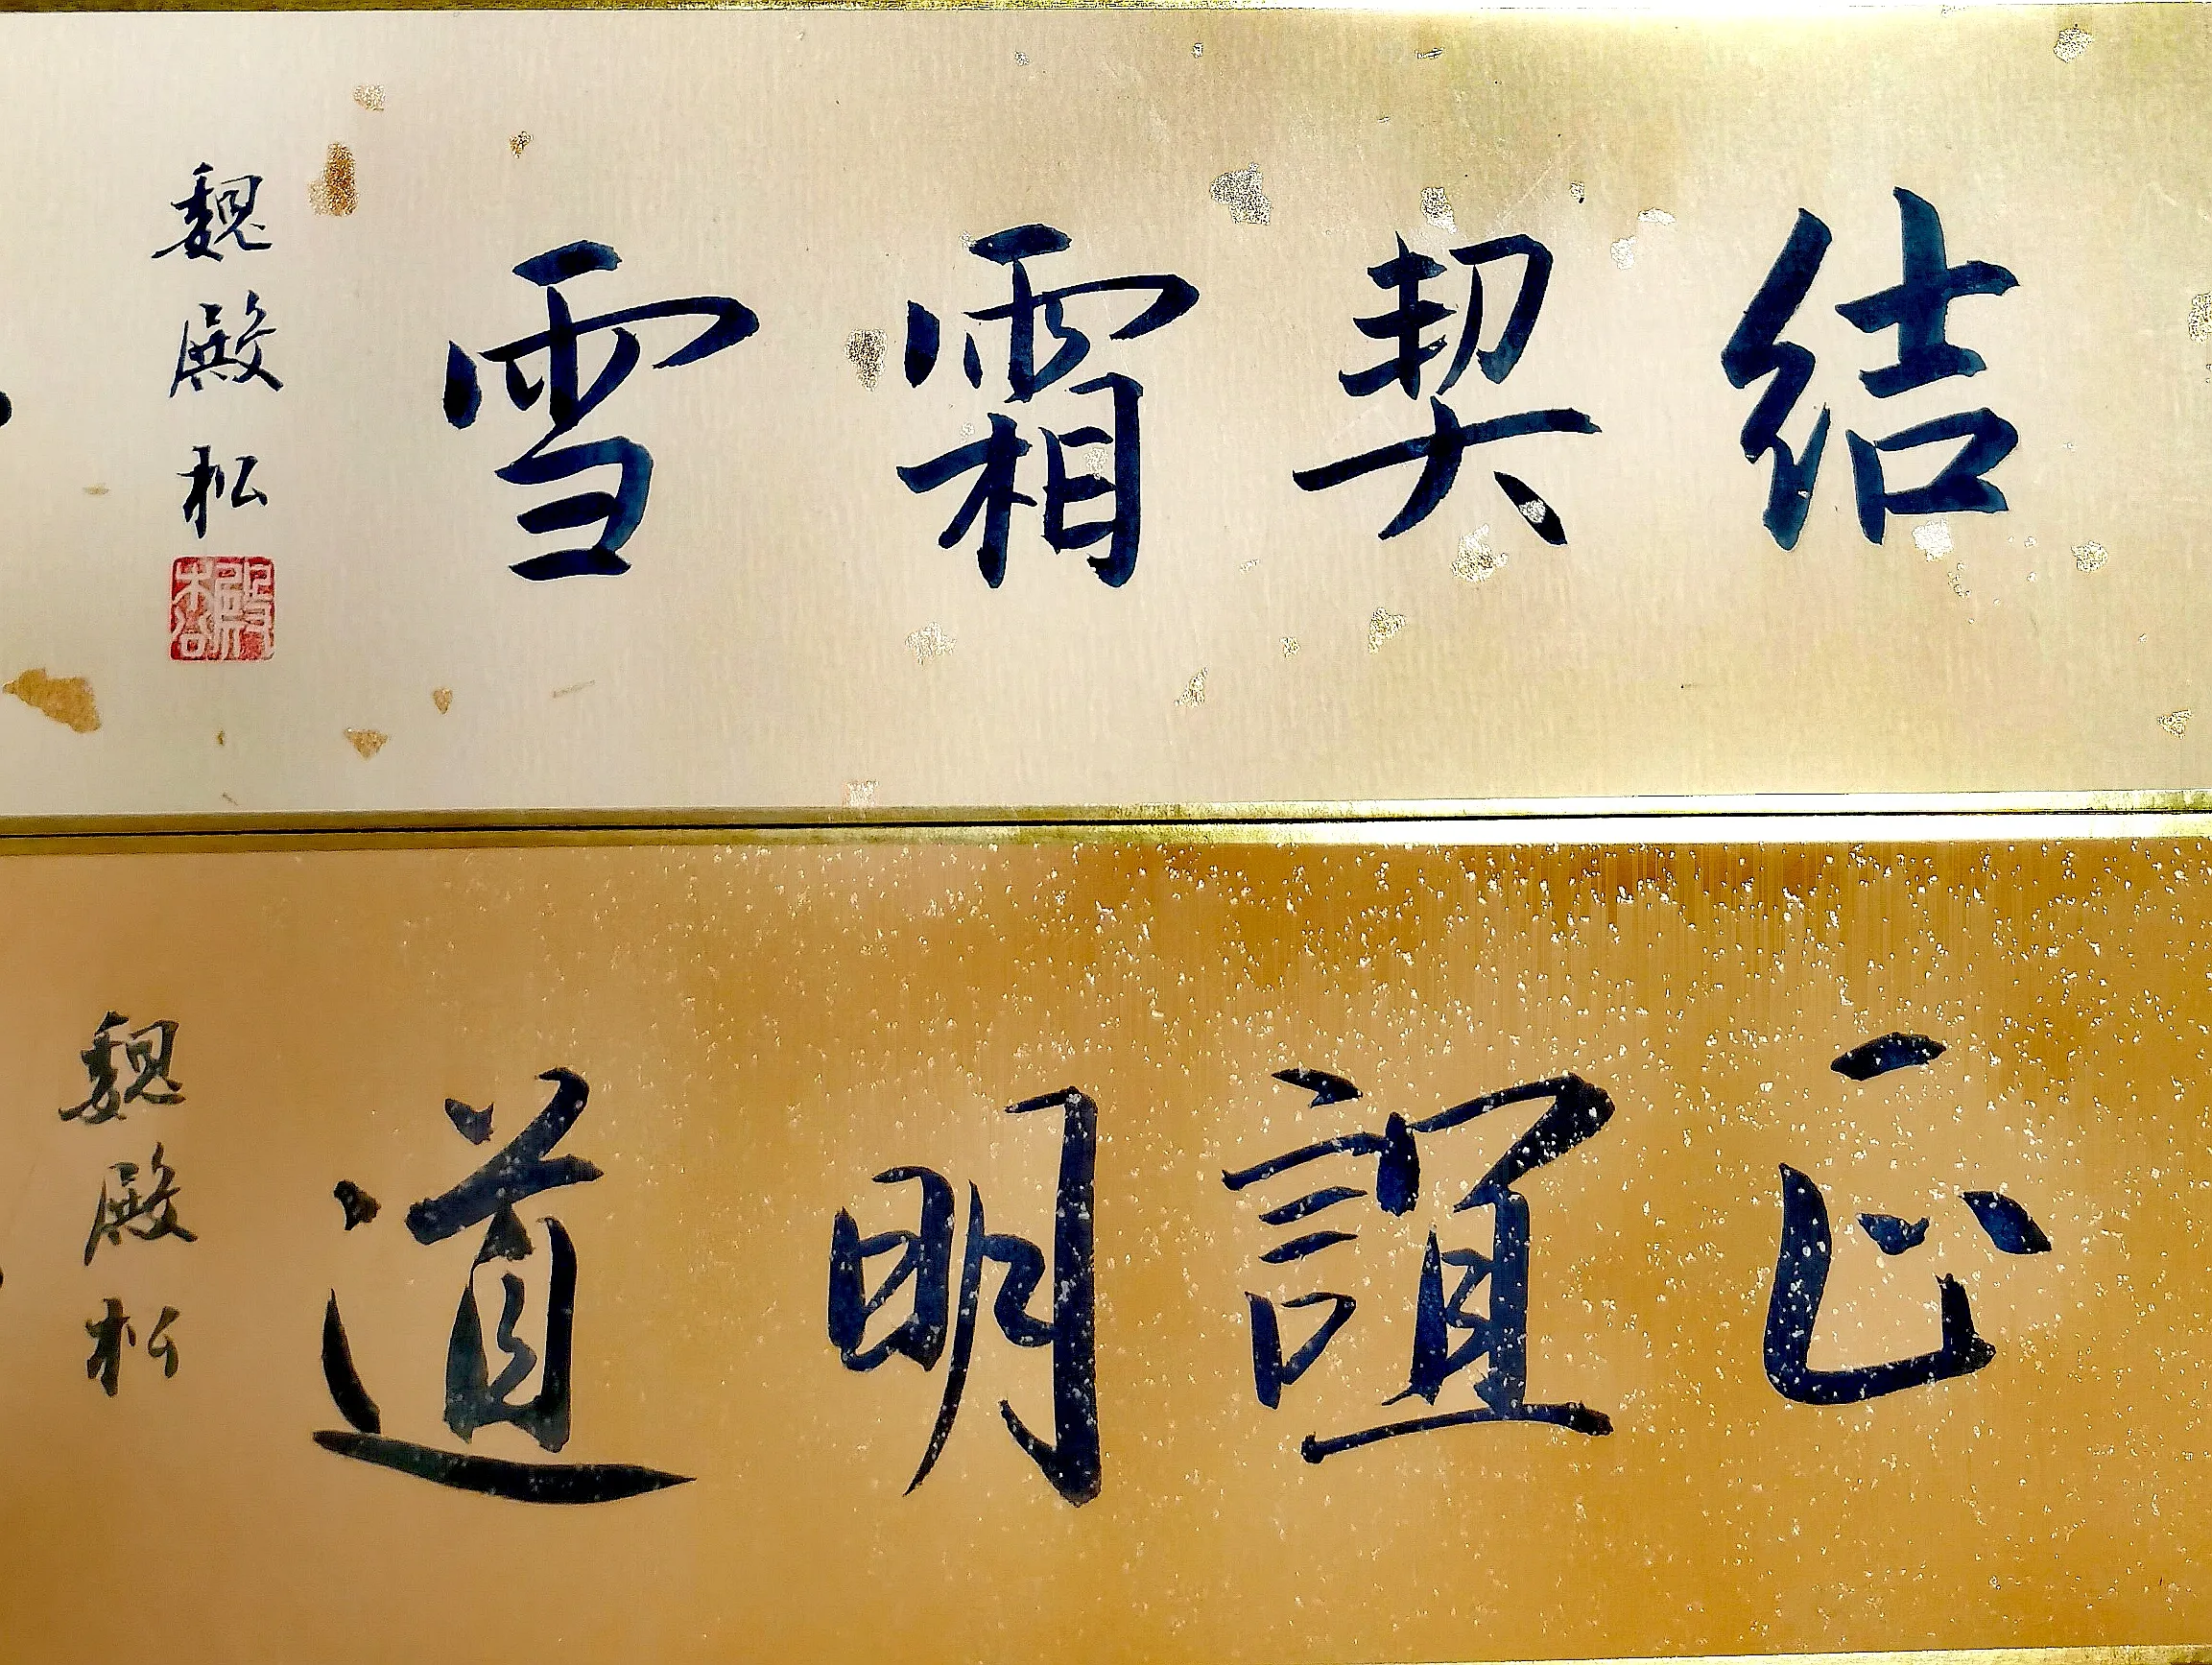 结契霜雪
魏殿松
殿松
正誼明道
魏殿松